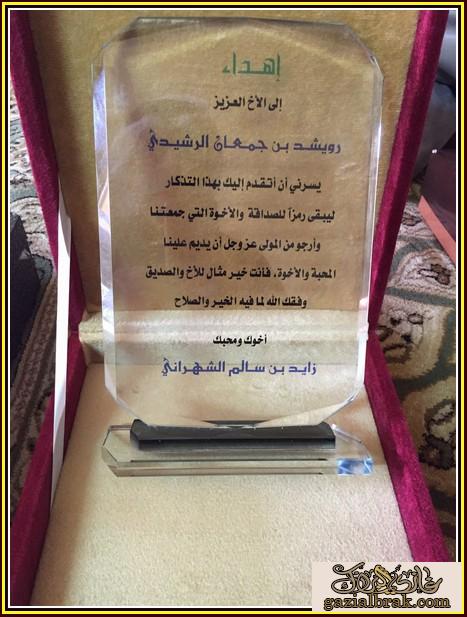 إهداء
إلى الأخ العزيز
رويشد بن جمعان الرشيدي
يسرني أن أتقدم إليك بهذا التذكار
ليبقى رمزاً للصداقة والأخوة التي جمعتنا
وأرجو من المولى عز وجل أن يديم علينا
المحبة والأخوة، فأنت خير مثال للأخ والصديق
وفقك الله لما فيه الخير والصلاح
أخوك ومحبك
زايد بن سالم الشهراني
gazialbrak.com